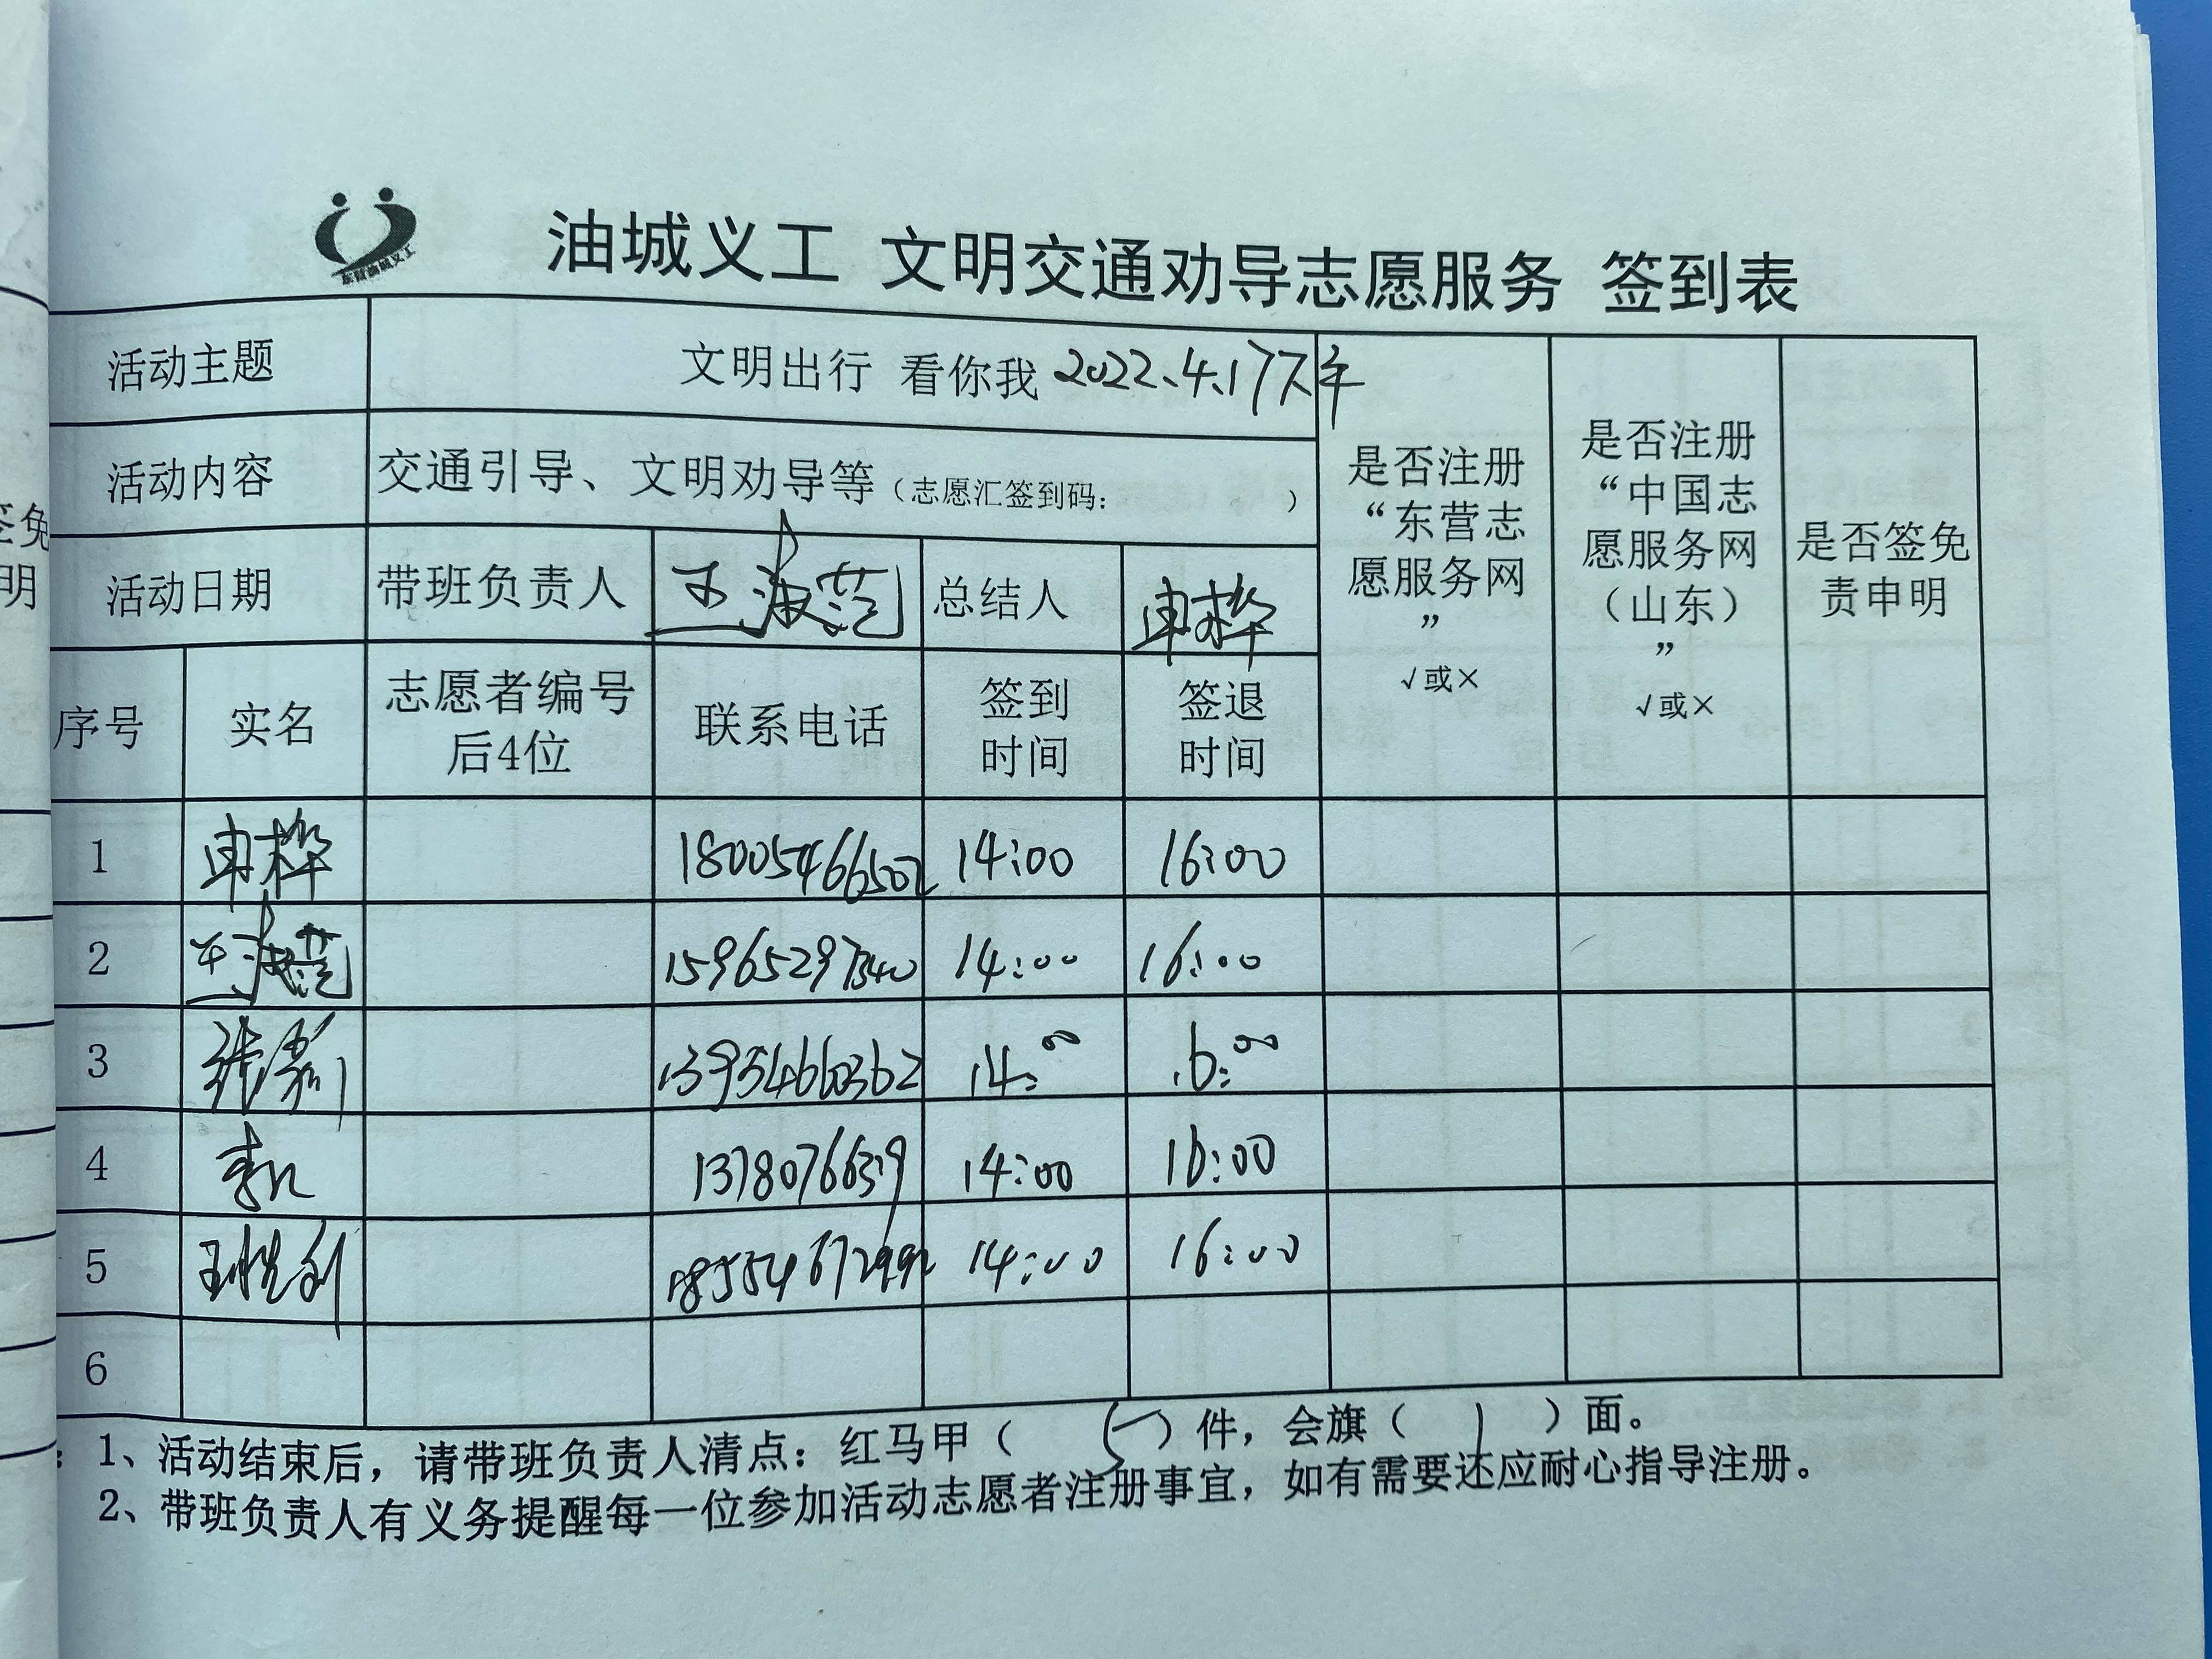 东营油城义工
油城义工 文明交通劝导志愿服务 签到表
活动主题 文明出行 看你我 2022.4.17下午
活动内容 交通引导、文明劝导等（志愿汇签到码： ）
活动日期 带班负责人 王淑范 总结人 申桦
序号 实名 志愿者编号后4位 联系电话 签到时间 签退时间
是否注册“东营志愿服务网” √或×
是否注册“中国志愿服务网（山东）” √或×
是否签免责申明
1 申桦 18005466502 14:00 16:00
2 王淑范 15965297340 14:00 16:00
3 13954660362 14:00 16:00
4 14:00 16:00
5 王胜利 14:00 16:00
6
1、活动结束后，请带班负责人清点：红马甲（ 5 ）件，会旗（ 1 ）面。
2、带班负责人有义务提醒每一位参加活动志愿者注册事宜，如有需要还应耐心指导注册。
签免
明